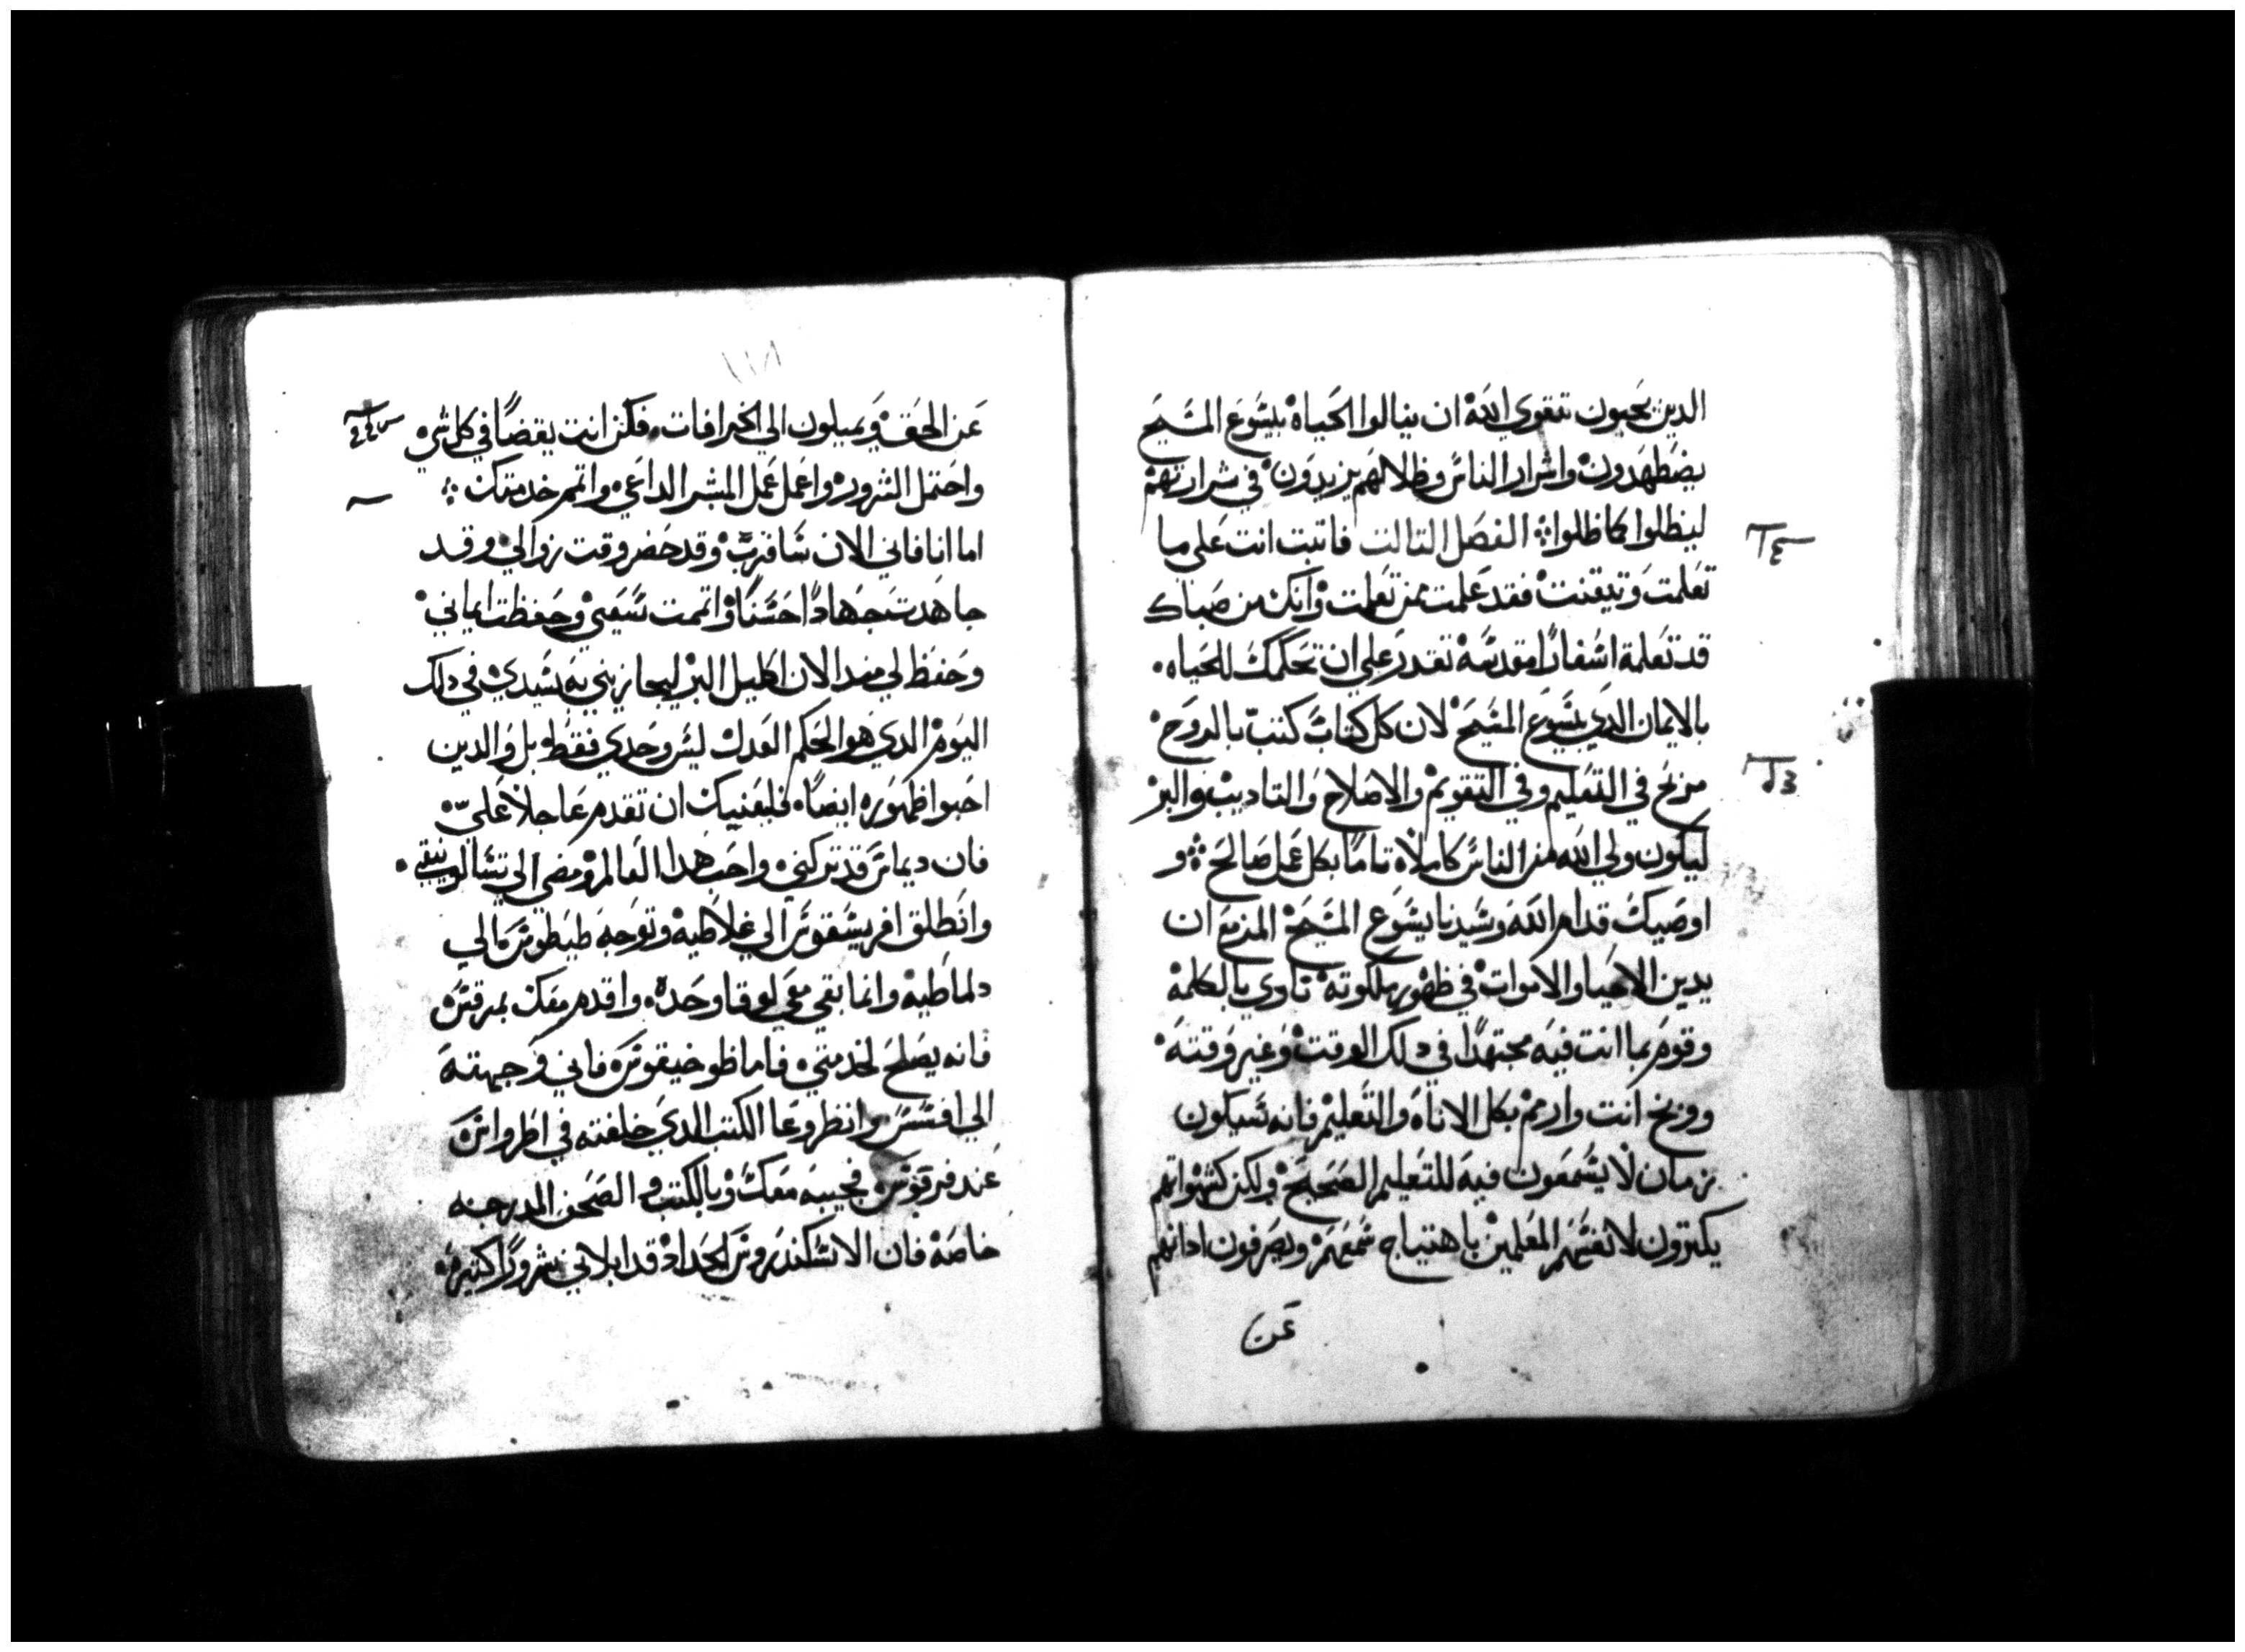 الدين يحبون تقوي الله ان ينالوا الحياه بيسوع المسيح
يضطهدون واشرار الناس وظلالهم يزيدون في شرارتهم
ليظلوا كما ظلوا الفصل التالت فاتبت انت علي ما
تعلمت وتيقنت فقد علمت ممن تعلمت وانك من صباك
قد تعلمة اسفارا مقدسه تقدر علي ان تحكمك للحياه
بالايمان الدي بيسوع المسيح لان كل كتاب كتب بالروح
مربح في التعليم وفي التقويم والاصلاح والتاديب والبر
ليكون ولي الله من الناس كاملا تاما بكل عمل صالح و
اوصيك قدام الله وسيدنا يسوع المسيح المزمع ان
يدين الاحيا والاموات في ظهور ملكوته نادي بالكلمه
وقوم بما انت فيه مجتهدا في دلك الوقت وغير وقته
ووبخ انت وارمم بكل الاناه والتعليم فانه سيكون
زمان لا يسمعون فيه للتعليم الصحيح ولكن كشهواتهم
يكترون لانفسهم المعلمين باهتياج سمعهم ويصرفون ادانهم
عن
١١٨
عن الحق ويميلون الي الخرافات فكن انت يقضا في كل شي
واحتمل الشرور واعمل عمل المبشر الداعي واتمم خدمتك
اما انا فاني الان ساقرب وقد حضر وقت زوالي وقد
جاهدت جهادا حسنا واتممت سعيي وحفظت ايماني
وحفظ لي مند الان اكليل البر ليجازيني به سيدي في دلك
اليوم الدي هو الحكم العدل ليس وحدي فقط بل والدين
احبوا ظهوره ايضا فليعنيك ان تقدم عاجلا علي
فان ديماس قد تركني واحب هدا العالم ومضي الي تسالونيقي
وانطلق افريسقوس الي غلاطيه وتوجه طيطوس الي
دلماطيه وانما بقي معي لوقا وحده واقدم معك بمرقس
فانه يصلح لخدمتي فاما طوخيقوس فاني وجهته
الي افسس وانظر وعا الكتب الدي خلفته في اطرواس
عند قربوس فجيبه معك وبالكتب الصحف المدرجه
خاصه فان الاسكندروس الحداد قد ابلاني شرورا كثيره